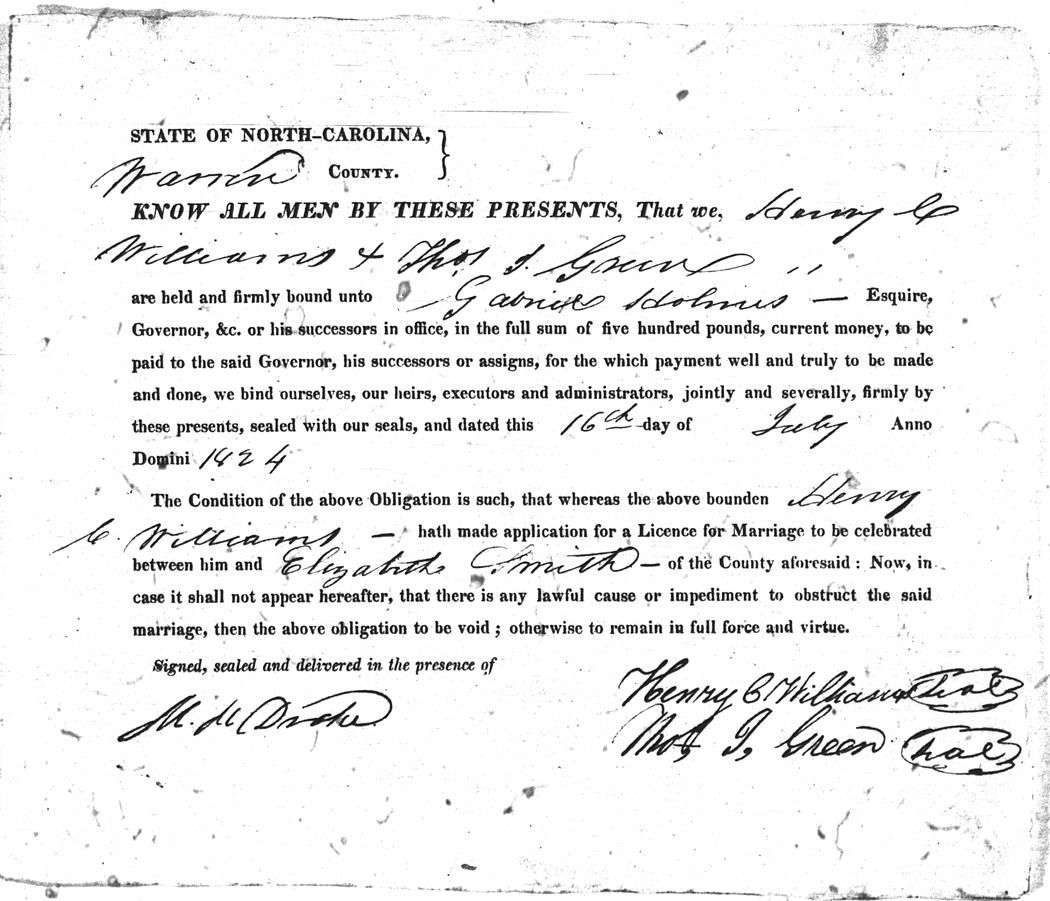 STATE OF NORTH-CAROLINA,
Warren COUNTY.
KNOW ALL MEN BY THESE PRESENTS, That we, Henry C
Williams & Thos J. Green "
are held and firmly bound unto Gabriel Holmes — Esquire,
Governor, &c. or his successors in office, in the full sum of five hundred pounds, current money, to be
paid to the said Governor, his successors or assigns, for the which payment well and truly to be made
and done, we bind ourselves, our heirs, executors and administrators, jointly and severally, firmly by
these presents, sealed with our seals, and dated this 16th day of July Anno
Domini 1824
The Condition of the above Obligation is such, that whereas the above bounden Henry
C. Williams — hath made application for a Licence for Marriage to be celebrated
between him and Elizabeth Smith — of the County aforesaid: Now, in
case it shall not appear hereafter, that there is any lawful cause or impediment to obstruct the said
marriage, then the above obligation to be void; otherwise to remain in full force and virtue.
Signed, sealed and delivered in the presence of
Henry C Williams Seal
M. M Drake
Thos J. Green Seal